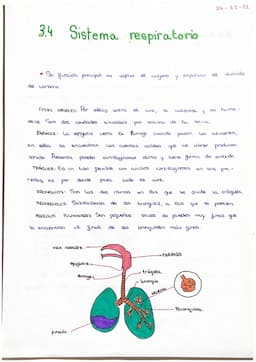 24-11-22
3.4 Sistema respiratorio
• Su función principal es captar el oxígeno y expulsar el dióxido
de carbono.
FOSAS NASALES: Por ellas entra el aire, se calienta y se hume-
dece. Son dos cavidades situadas por encima de la boca.
FARINGE: La epiglotis cierra la faringe cuando pasan los alimentos,
en ella se encuentran las cuerdas vocales que al vibrar producen
sonido. Presenta paredes cartilaginosas duras y tiene forma de embudo.
TRÁQUEA: Es un tubo flexible con anillos cartilaginosos en sus pa-
redes, es por donde pasa todo el aire.
BRONQUIOS: Son las dos ramas en las que se divide la tráquea.
BRONQUIOLOS: Subdivisiones de los bronquios, a los que se parecen.
ALVEOLOS PULMONARES: Son pequeños sacos de paredes muy finas que
se encuentran al final de los bronquiolos más finos.
fosas nasales
FARINGE
epiglotis
laringe
tráquea
bronquio
alveolo
Bronquiolos
pulmón